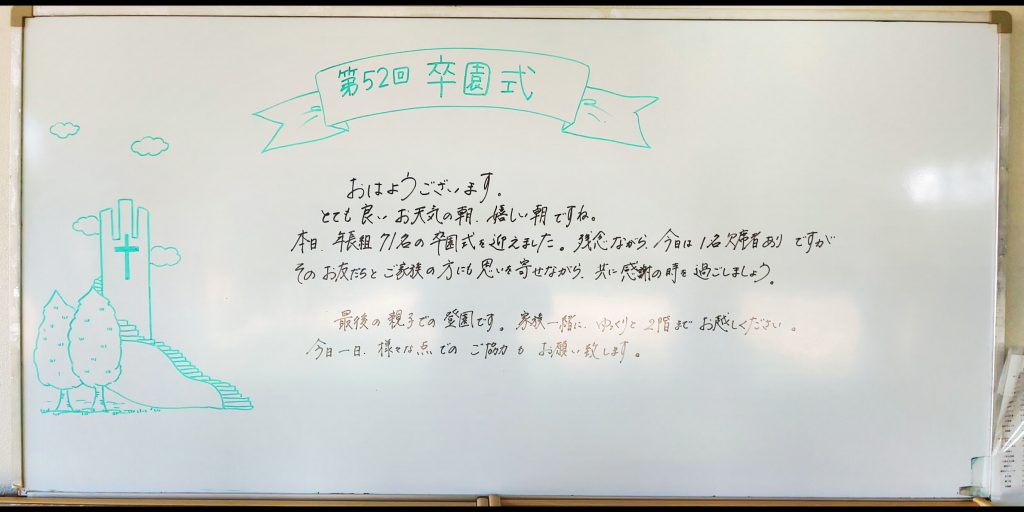 第52回 卒園式
おはようございます。
とても 良い お天気の朝、嬉しい 朝 ですね。
本日、年長組 71名の 卒園式を迎えました。残念ながら、今日は 1名欠席者あり ですが
その お友だちと ご家族の 方にも 思いを 寄せながら、共に 感謝の時を 過ごしましょう。
最後の 親子での 登園です。家族一緒に、ゆっくりと 2階まで お越しください。
今日一日、様々な点での ご協力も お願い致します。